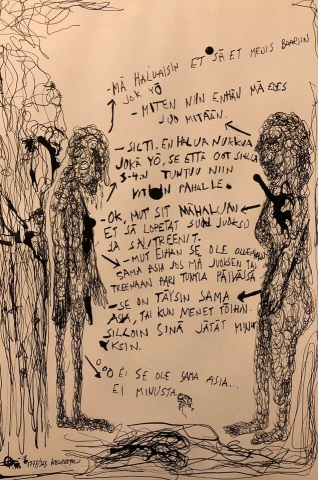 -MÄ HALUAISIN ET SÄ ET MENIS BAARIIN
JOK YÖ
-MITEN NIIN ENHÄN MÄ EDES
JUO MITÄÄN.
-SILTI. EN HALUA NUKKUA
JOKA YÖ, SE ETTÄ OOT SIELLÄ
3-4:N TUNTUU NIIN
PAHALLE.
-OK, MUT SIT MÄ HALUAN
ET SÄ LOPETAT SUN JUOKSU
JA SALITREENIT.
-MUT EIHÄN SE OLE OLLENKAAN
SAMA ASIA JOS MÄ JUOKSEN TAI
TREENAAN PARI TUNTIA PÄIVÄSSÄ
-SE ON TÄYSIN SAMA
ASIA, TAI KUN MENET TÖIHIN.
SILLOIN SINÄ JÄTÄT MINUT
YKSIN.
EI SE OLE SAMA ASIA...
EI MINUSTA